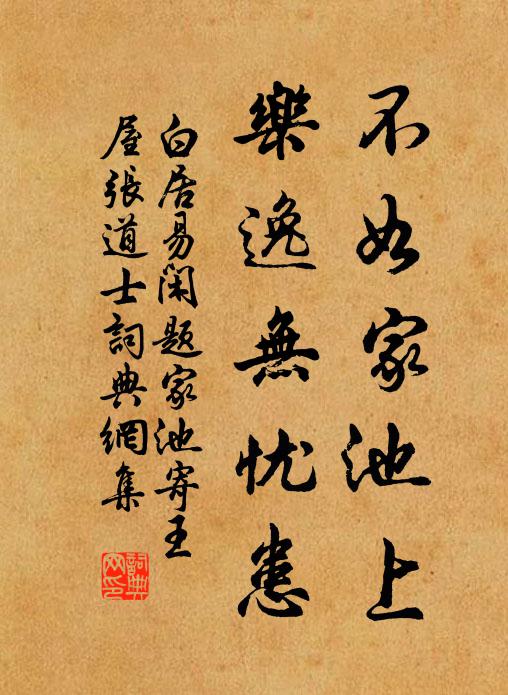 不如家池上
樂逸無忧患
白居易閑題家池寄王
屋張道士詞典網集
詞典
网印